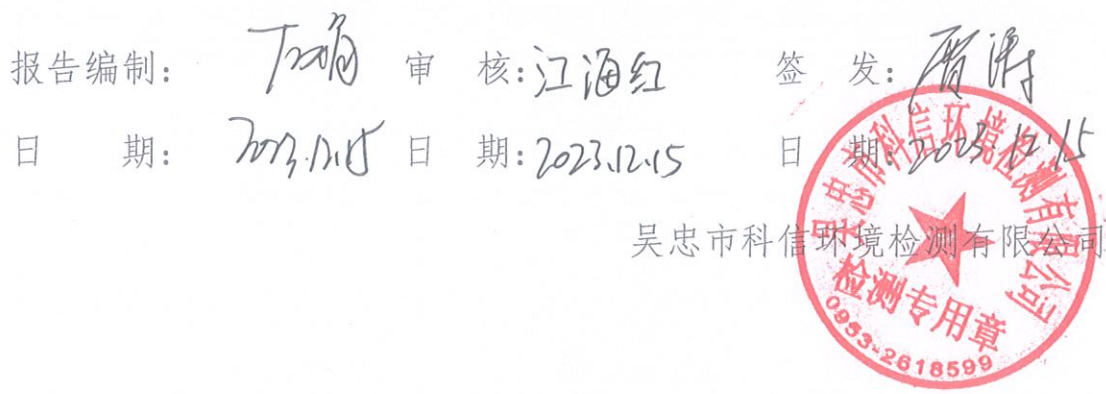 报告编制: 审 核:江海红 签 发:贾涛
日 期: 2023.12.15 日 期:2023.12.15 日 期:2023.12.15
吴忠市科信环境检测有限公司
吴忠市科信环境检测有限公司
检测专用章
0953-2618599